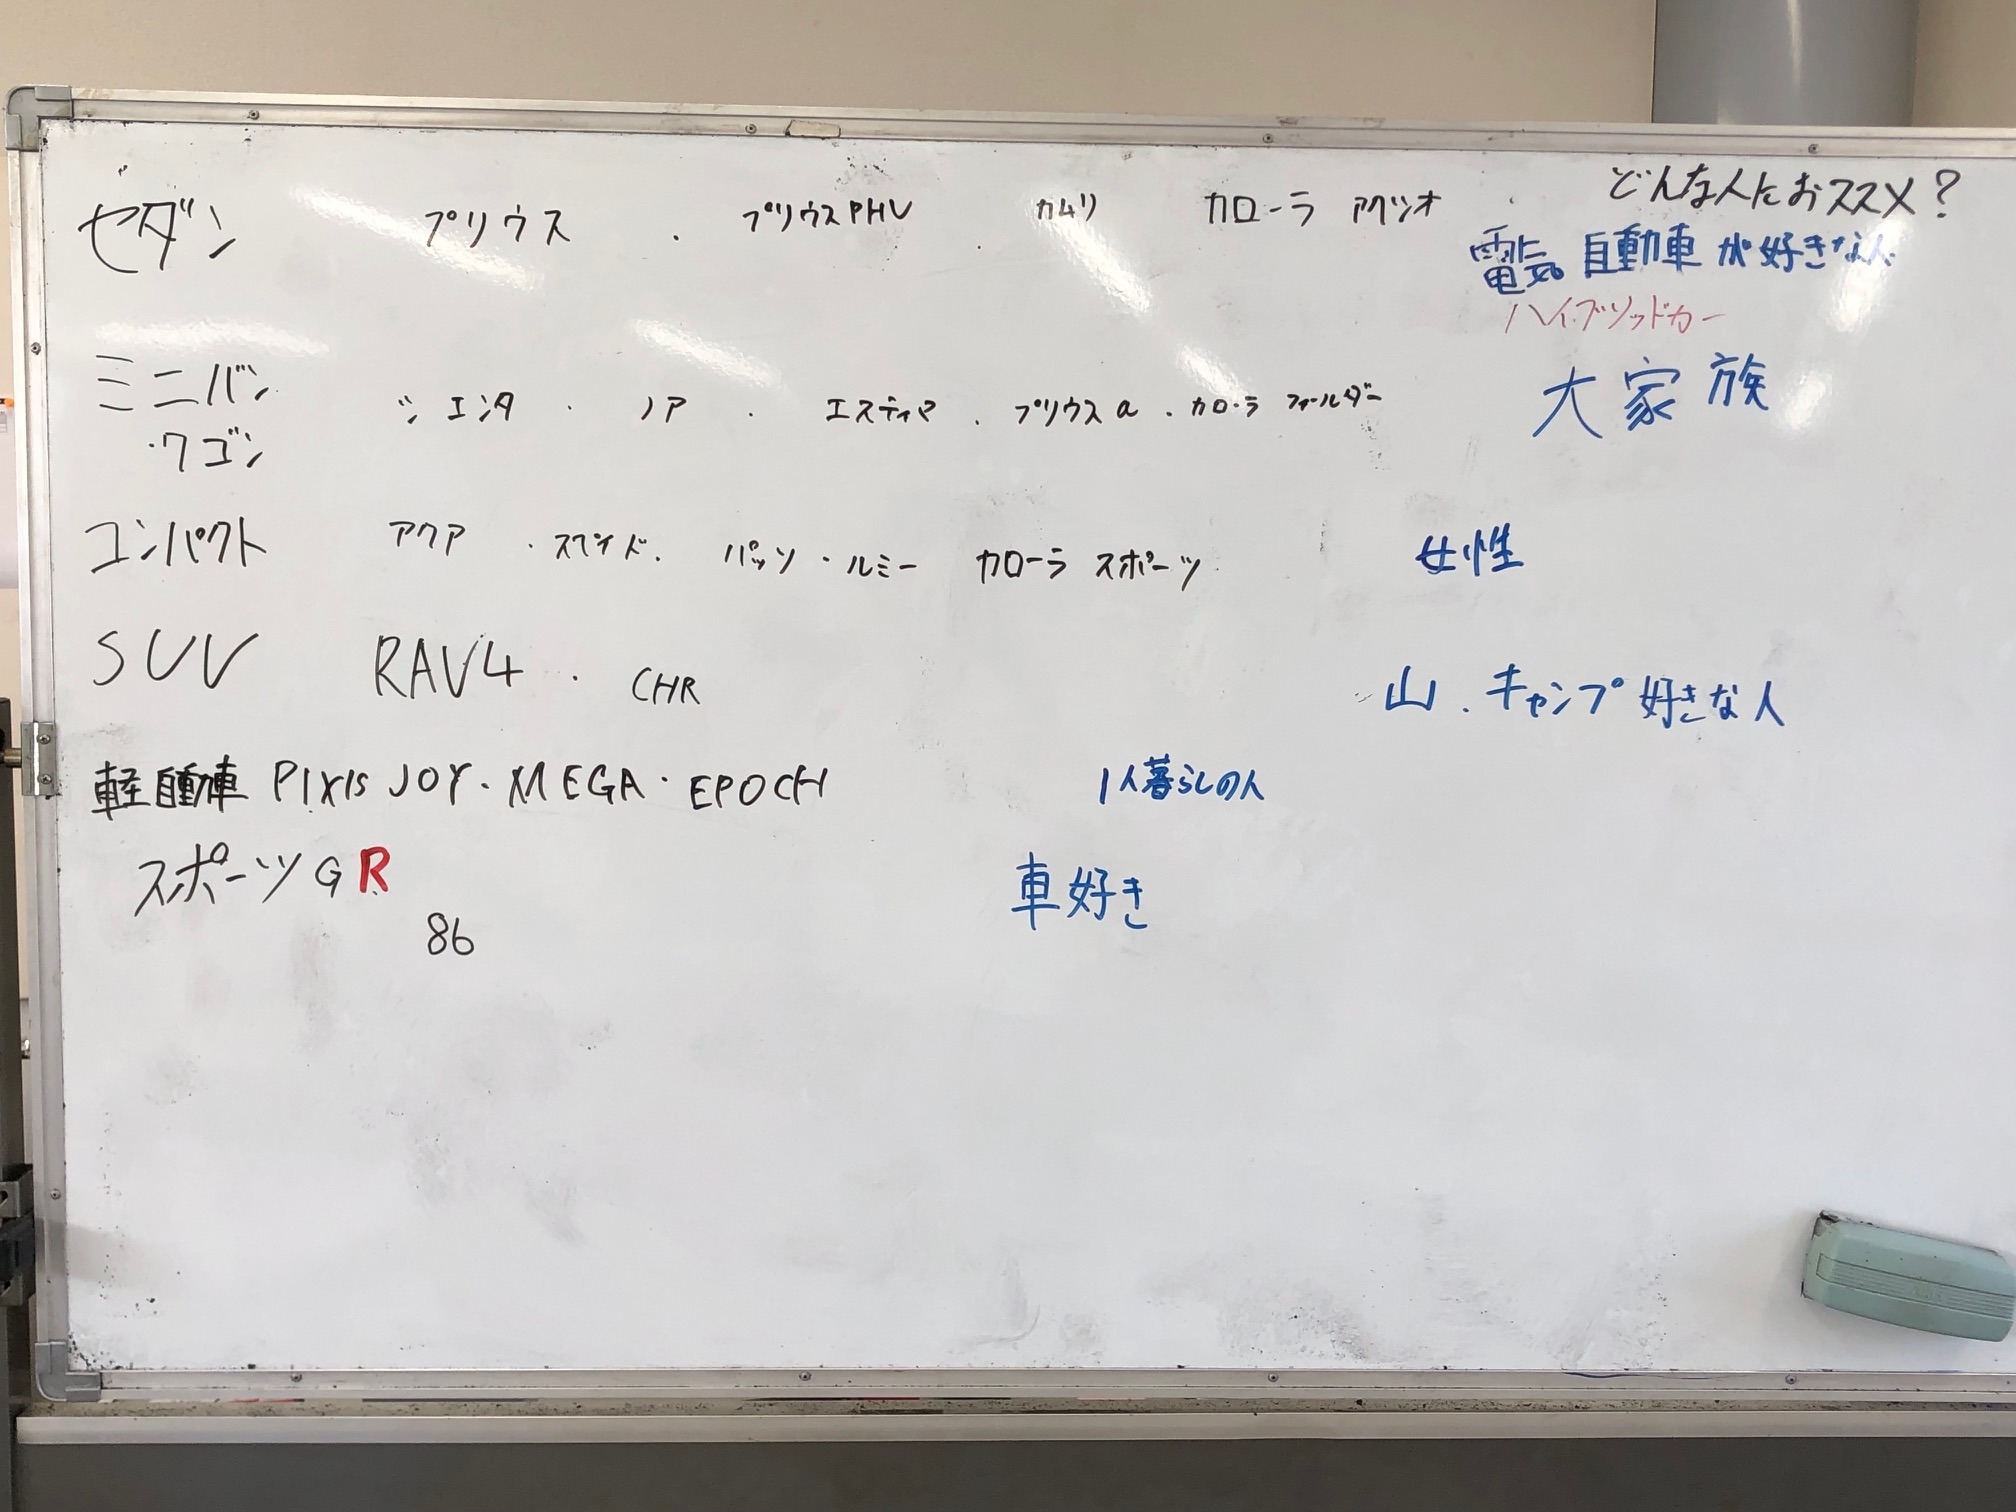 セダン プリウス ・ プリウスPHV ・ カムリ カローラ アクシオ ・ どんな人におススメ?
電気自動車が好きな人
ハイブリッドカー
ミニバン シエンタ ・ ノア ・ エスティマ ・ プリウスα ・ カローラ フィールダー 大家族
・ワゴン
コンパクト アクア ・ スペイド ・ パッソ ・ ルミー カローラ スポーツ 女性
SUV RAV4 ・ CHR 山 ・ キャンプ好きな人
軽自動車 PIXIS JOY ・ MEGA ・ EPOCH 1人暮らしの人
スポーツ GR 車好き
86